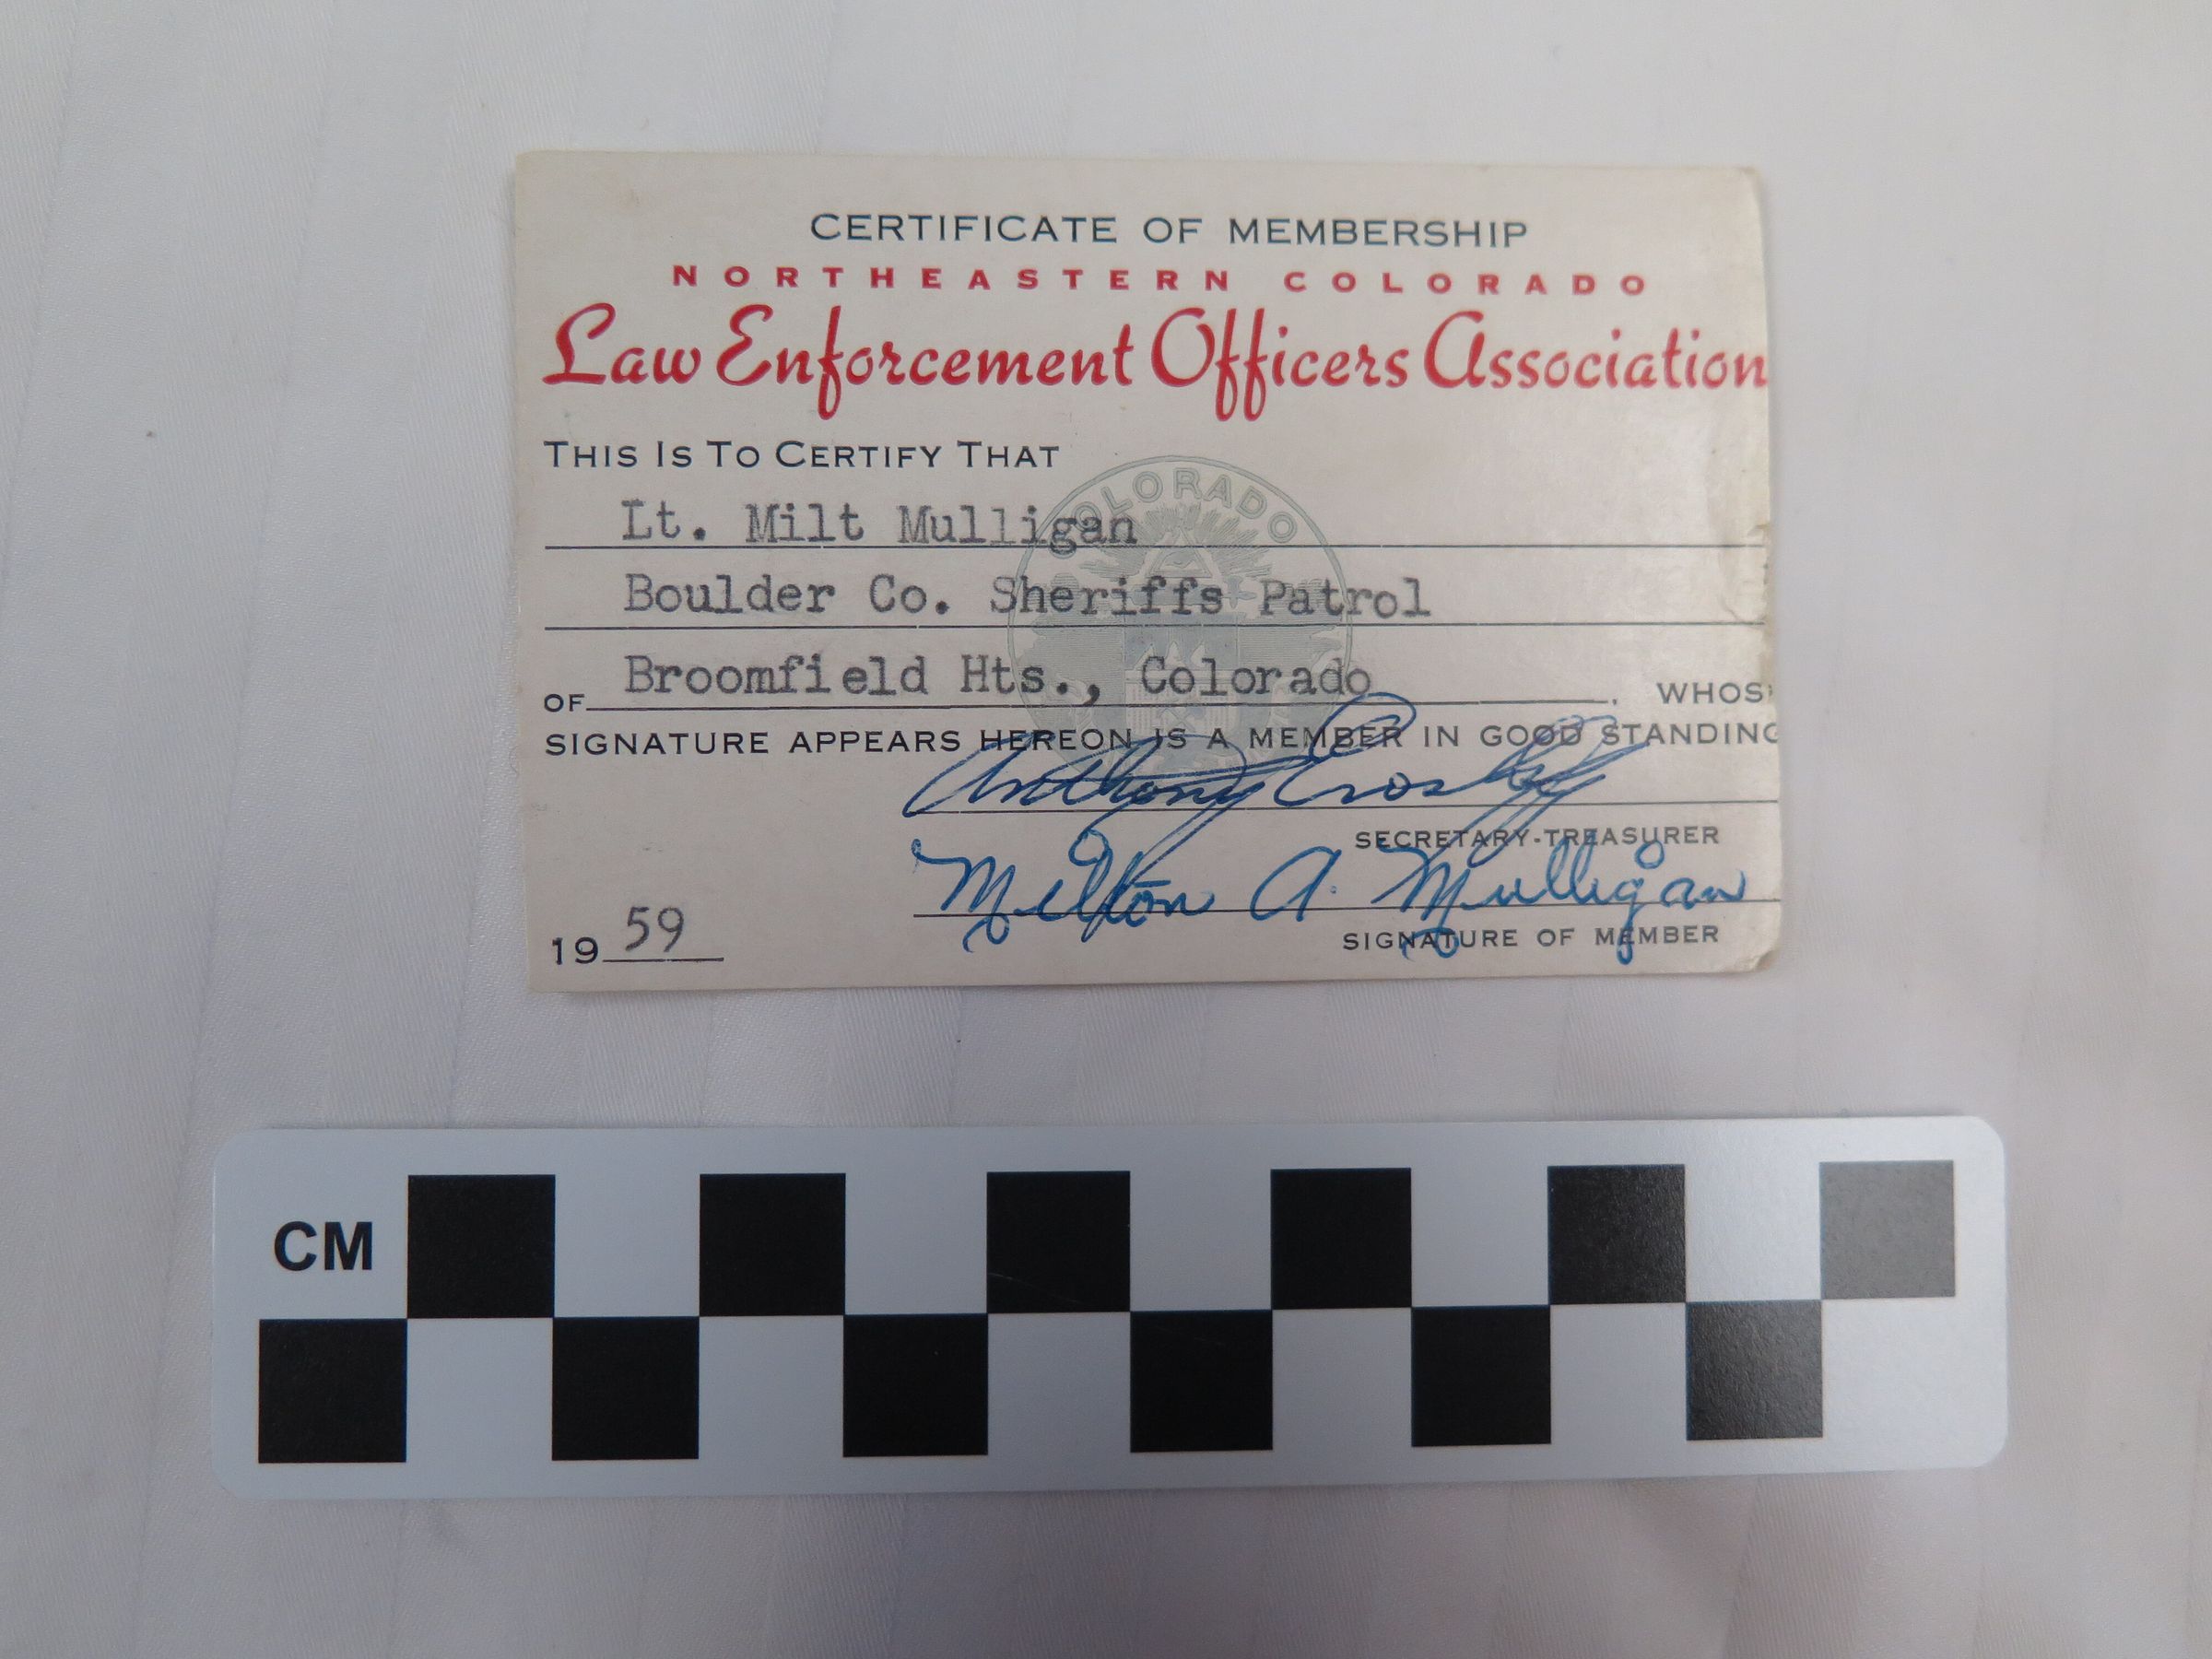 CERTIFICATE OF MEMBERSHIP
NORTHEASTERN COLORADO
Law Enforcement Officers Association
THIS IS TO CERTIFY THAT
COLORADO
Lt. Milt Mulligan
Boulder Co. Sheriffs Patrol
OF Broomfield Hts., Colorado, WHOS
SIGNATURE APPEARS HEREON IS A MEMBER IN GOOD STANDING
Anthony Crosby
SECRETARY-TREASURER
Milton A. Mulligan
SIGNATURE OF MEMBER
19 59
CM